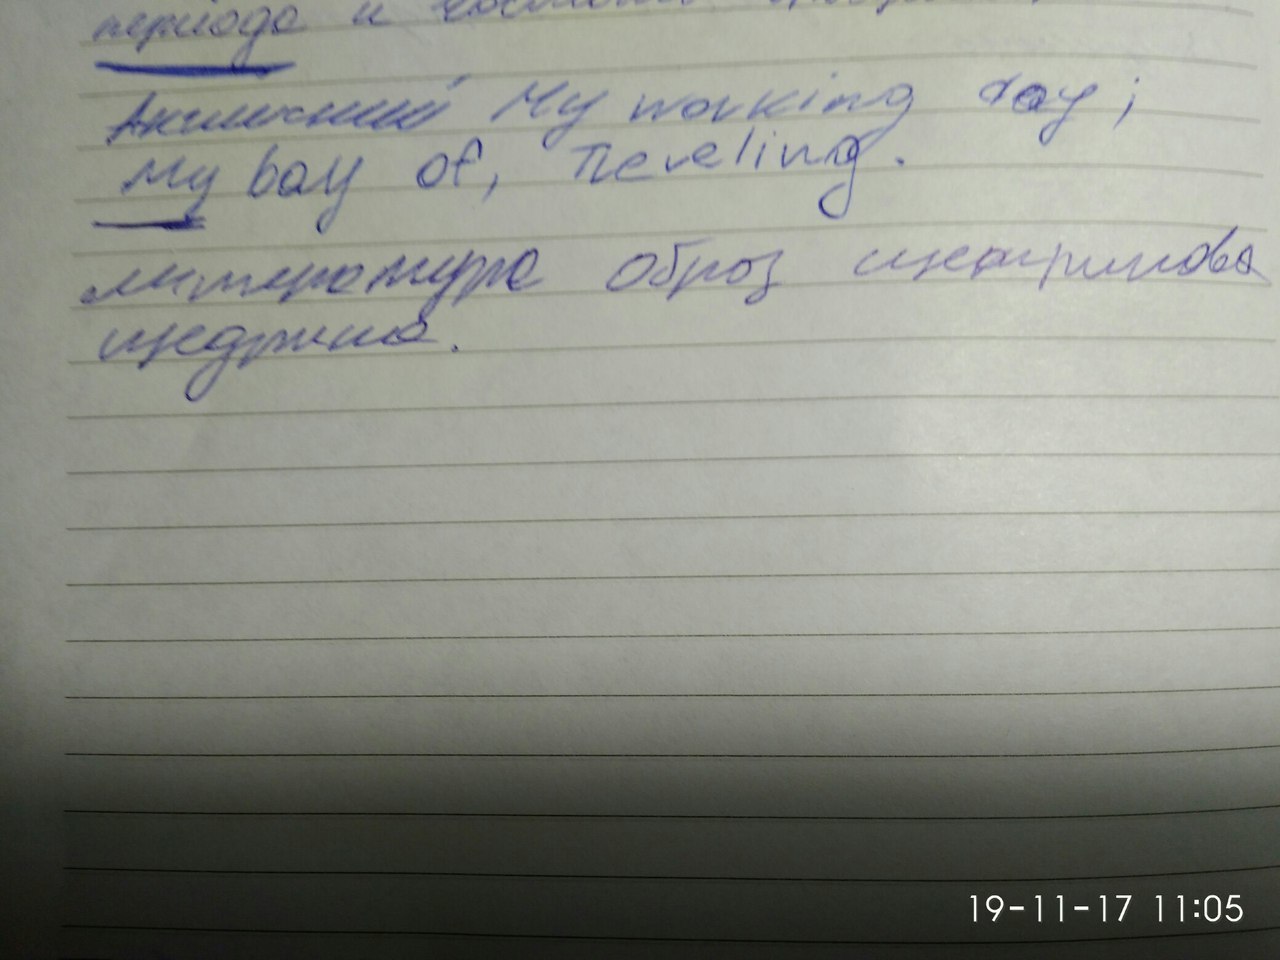 периода и
Английский My working day;
My bay of, Treveling.
литература образ
щедрина.
19-11-17 11:05